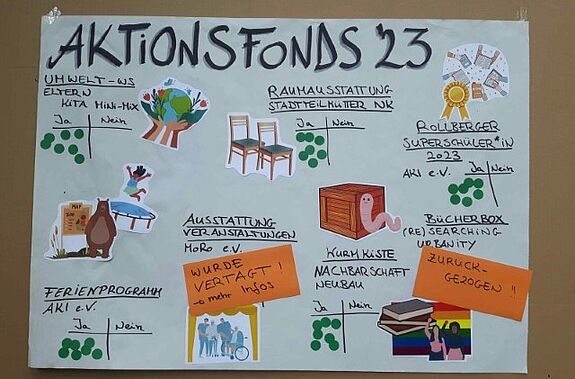 AKTIONSFONDS '23
UMWELT-WS
ELTERN
KITA MINI-MIX
Ja Nein
RAUMAUSSTATTUNG
STADTTEILMÜTTER NK
Ja Nein
ROLLBERGER
SUPERSCHÜLER*IN
2023
AKI e.V.
Ja Nein
FERIENPROGRAMM
AKI e.V.
Ja Nein
AUSSTATTUNG
VERANSTALTUNGEN
MoRo e.V.
WURDE
VERTAGT!
→ mehr Infos
WURMKISTE
NACHBARSCHAFT
NEUBAU
Ja Nein
BÜCHERBOX
(RE)SEARCHING
URBANITY
ZURÜCK-
GEZOGEN!!